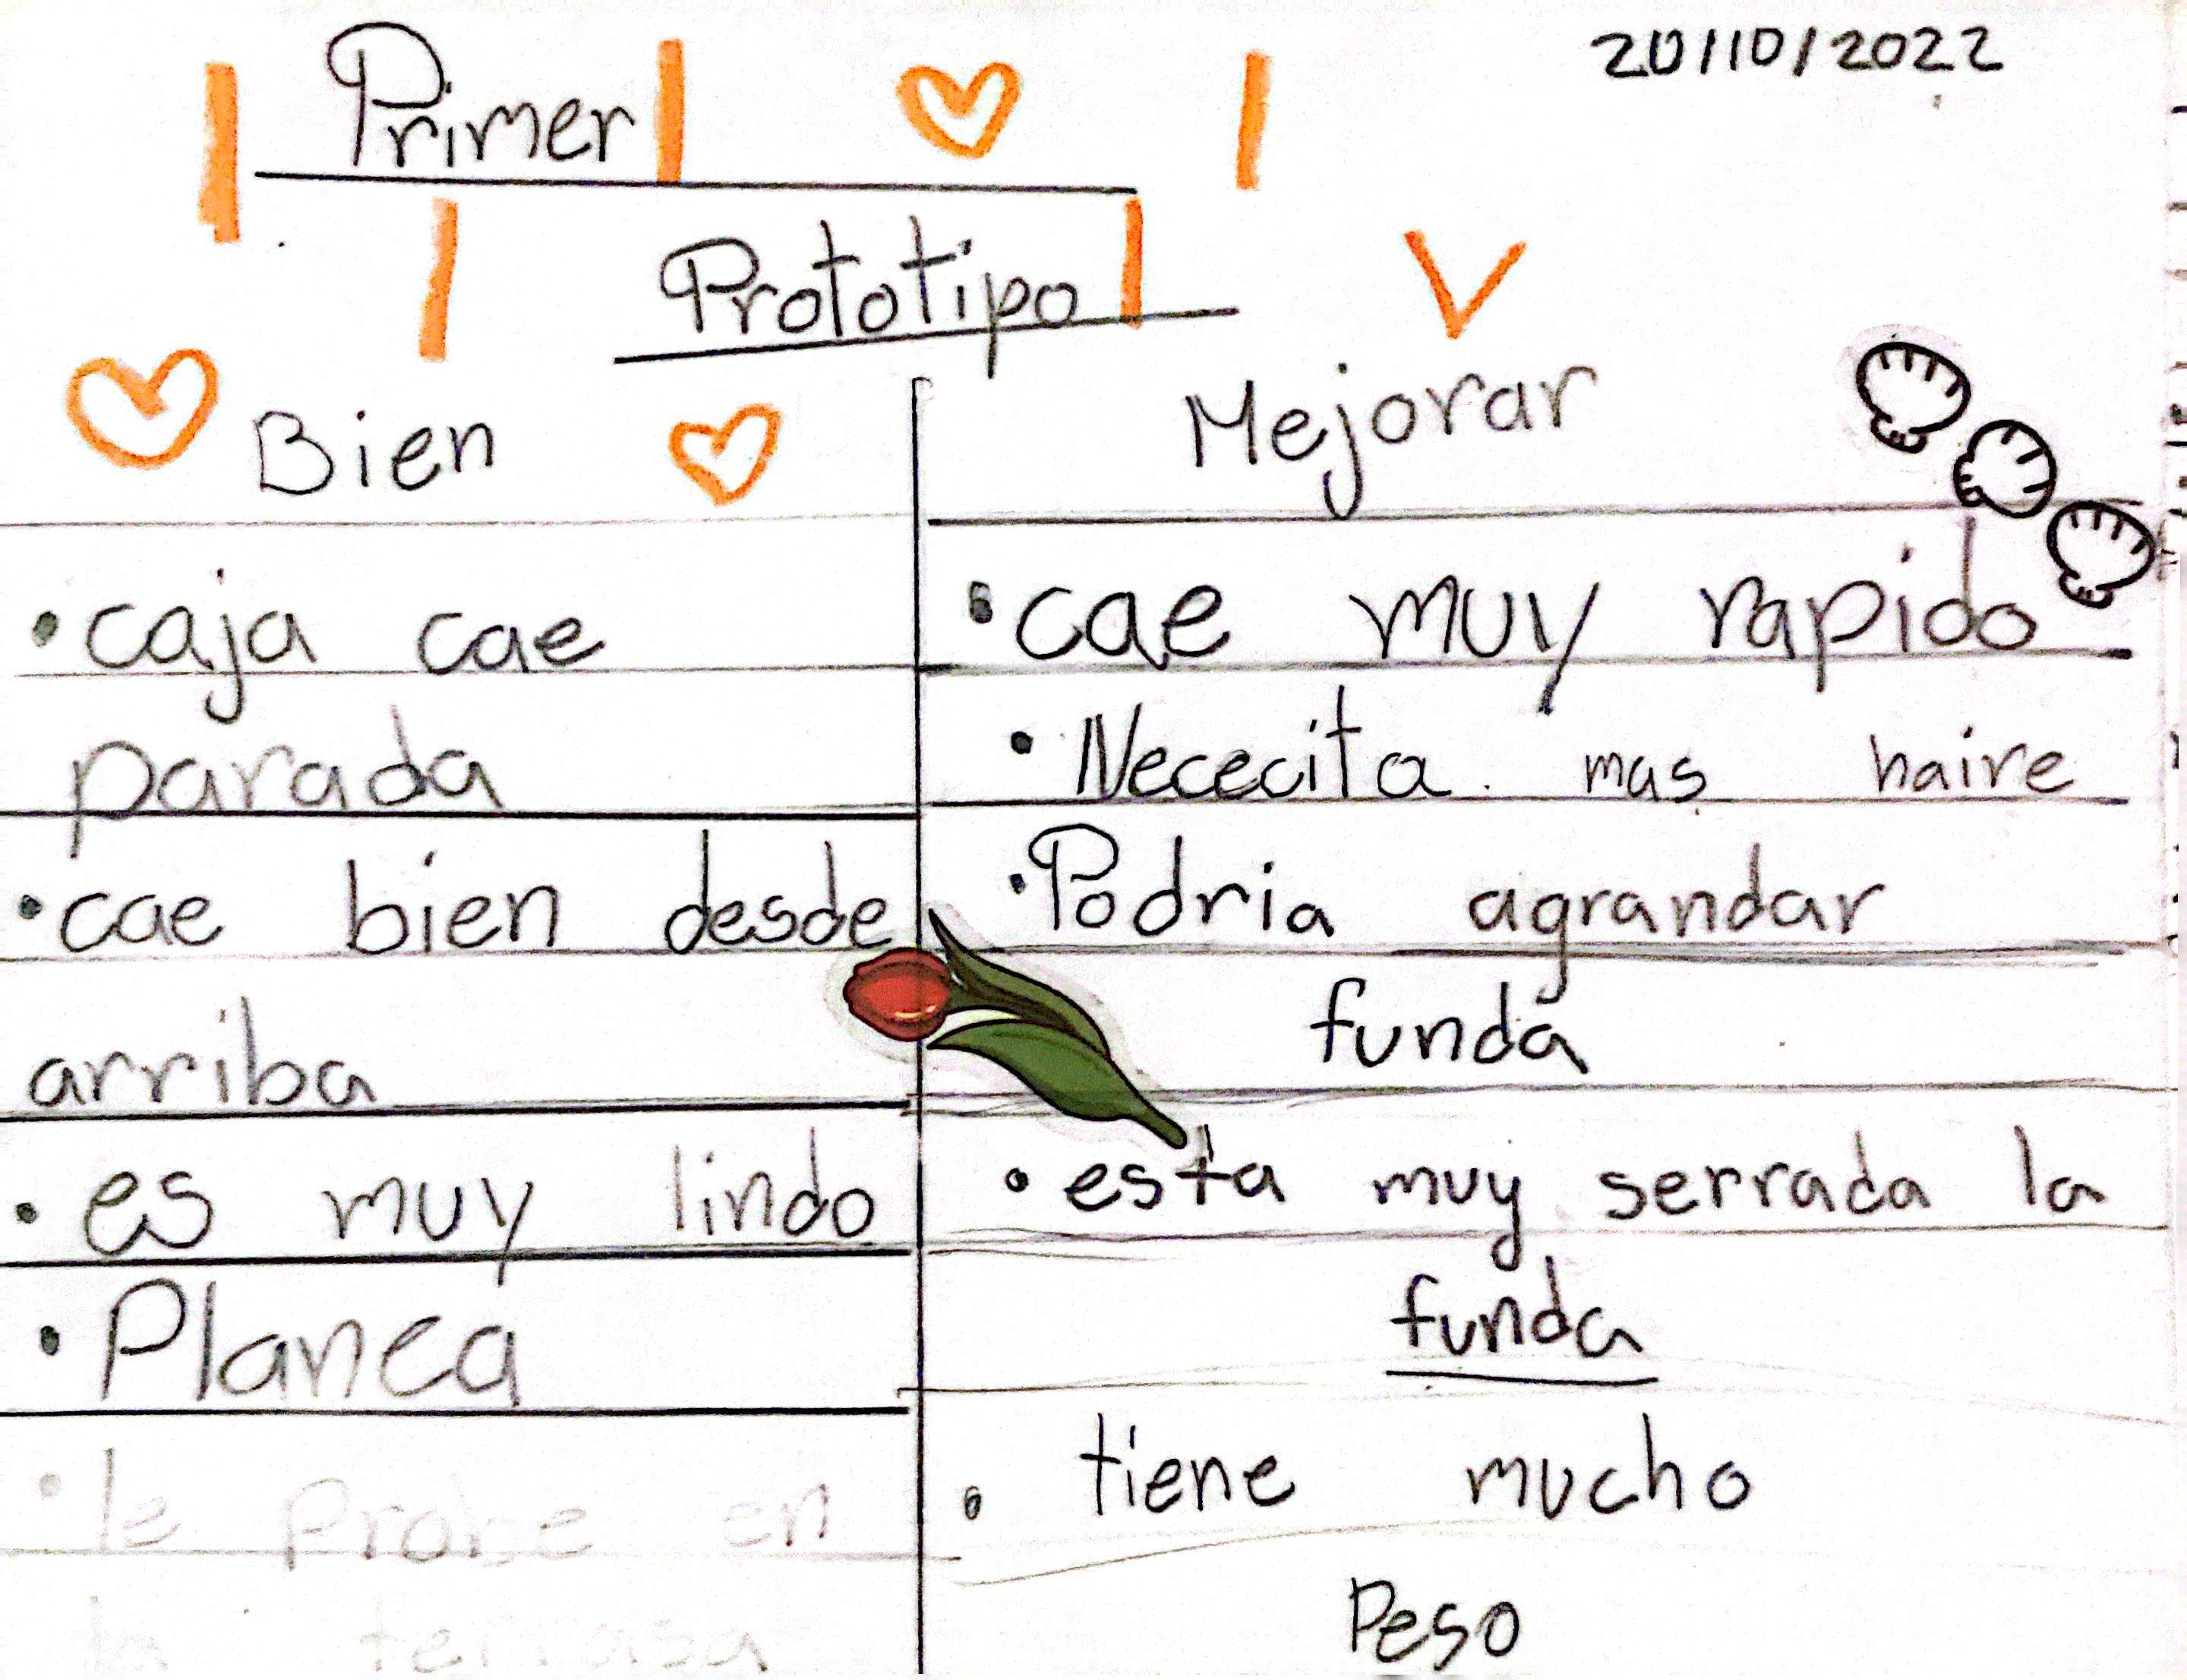 20/10/2022
Primer
Prototipo
Bien
• caja cae
parada
• cae bien desde
arriba
• es muy lindo
• Planea
• le probe en
la terrasa
Mejorar
• cae muy rapido
• Nececita mas haire
• Podria agrandar
funda
• esta muy serrada la
funda
• tiene mucho
Peso